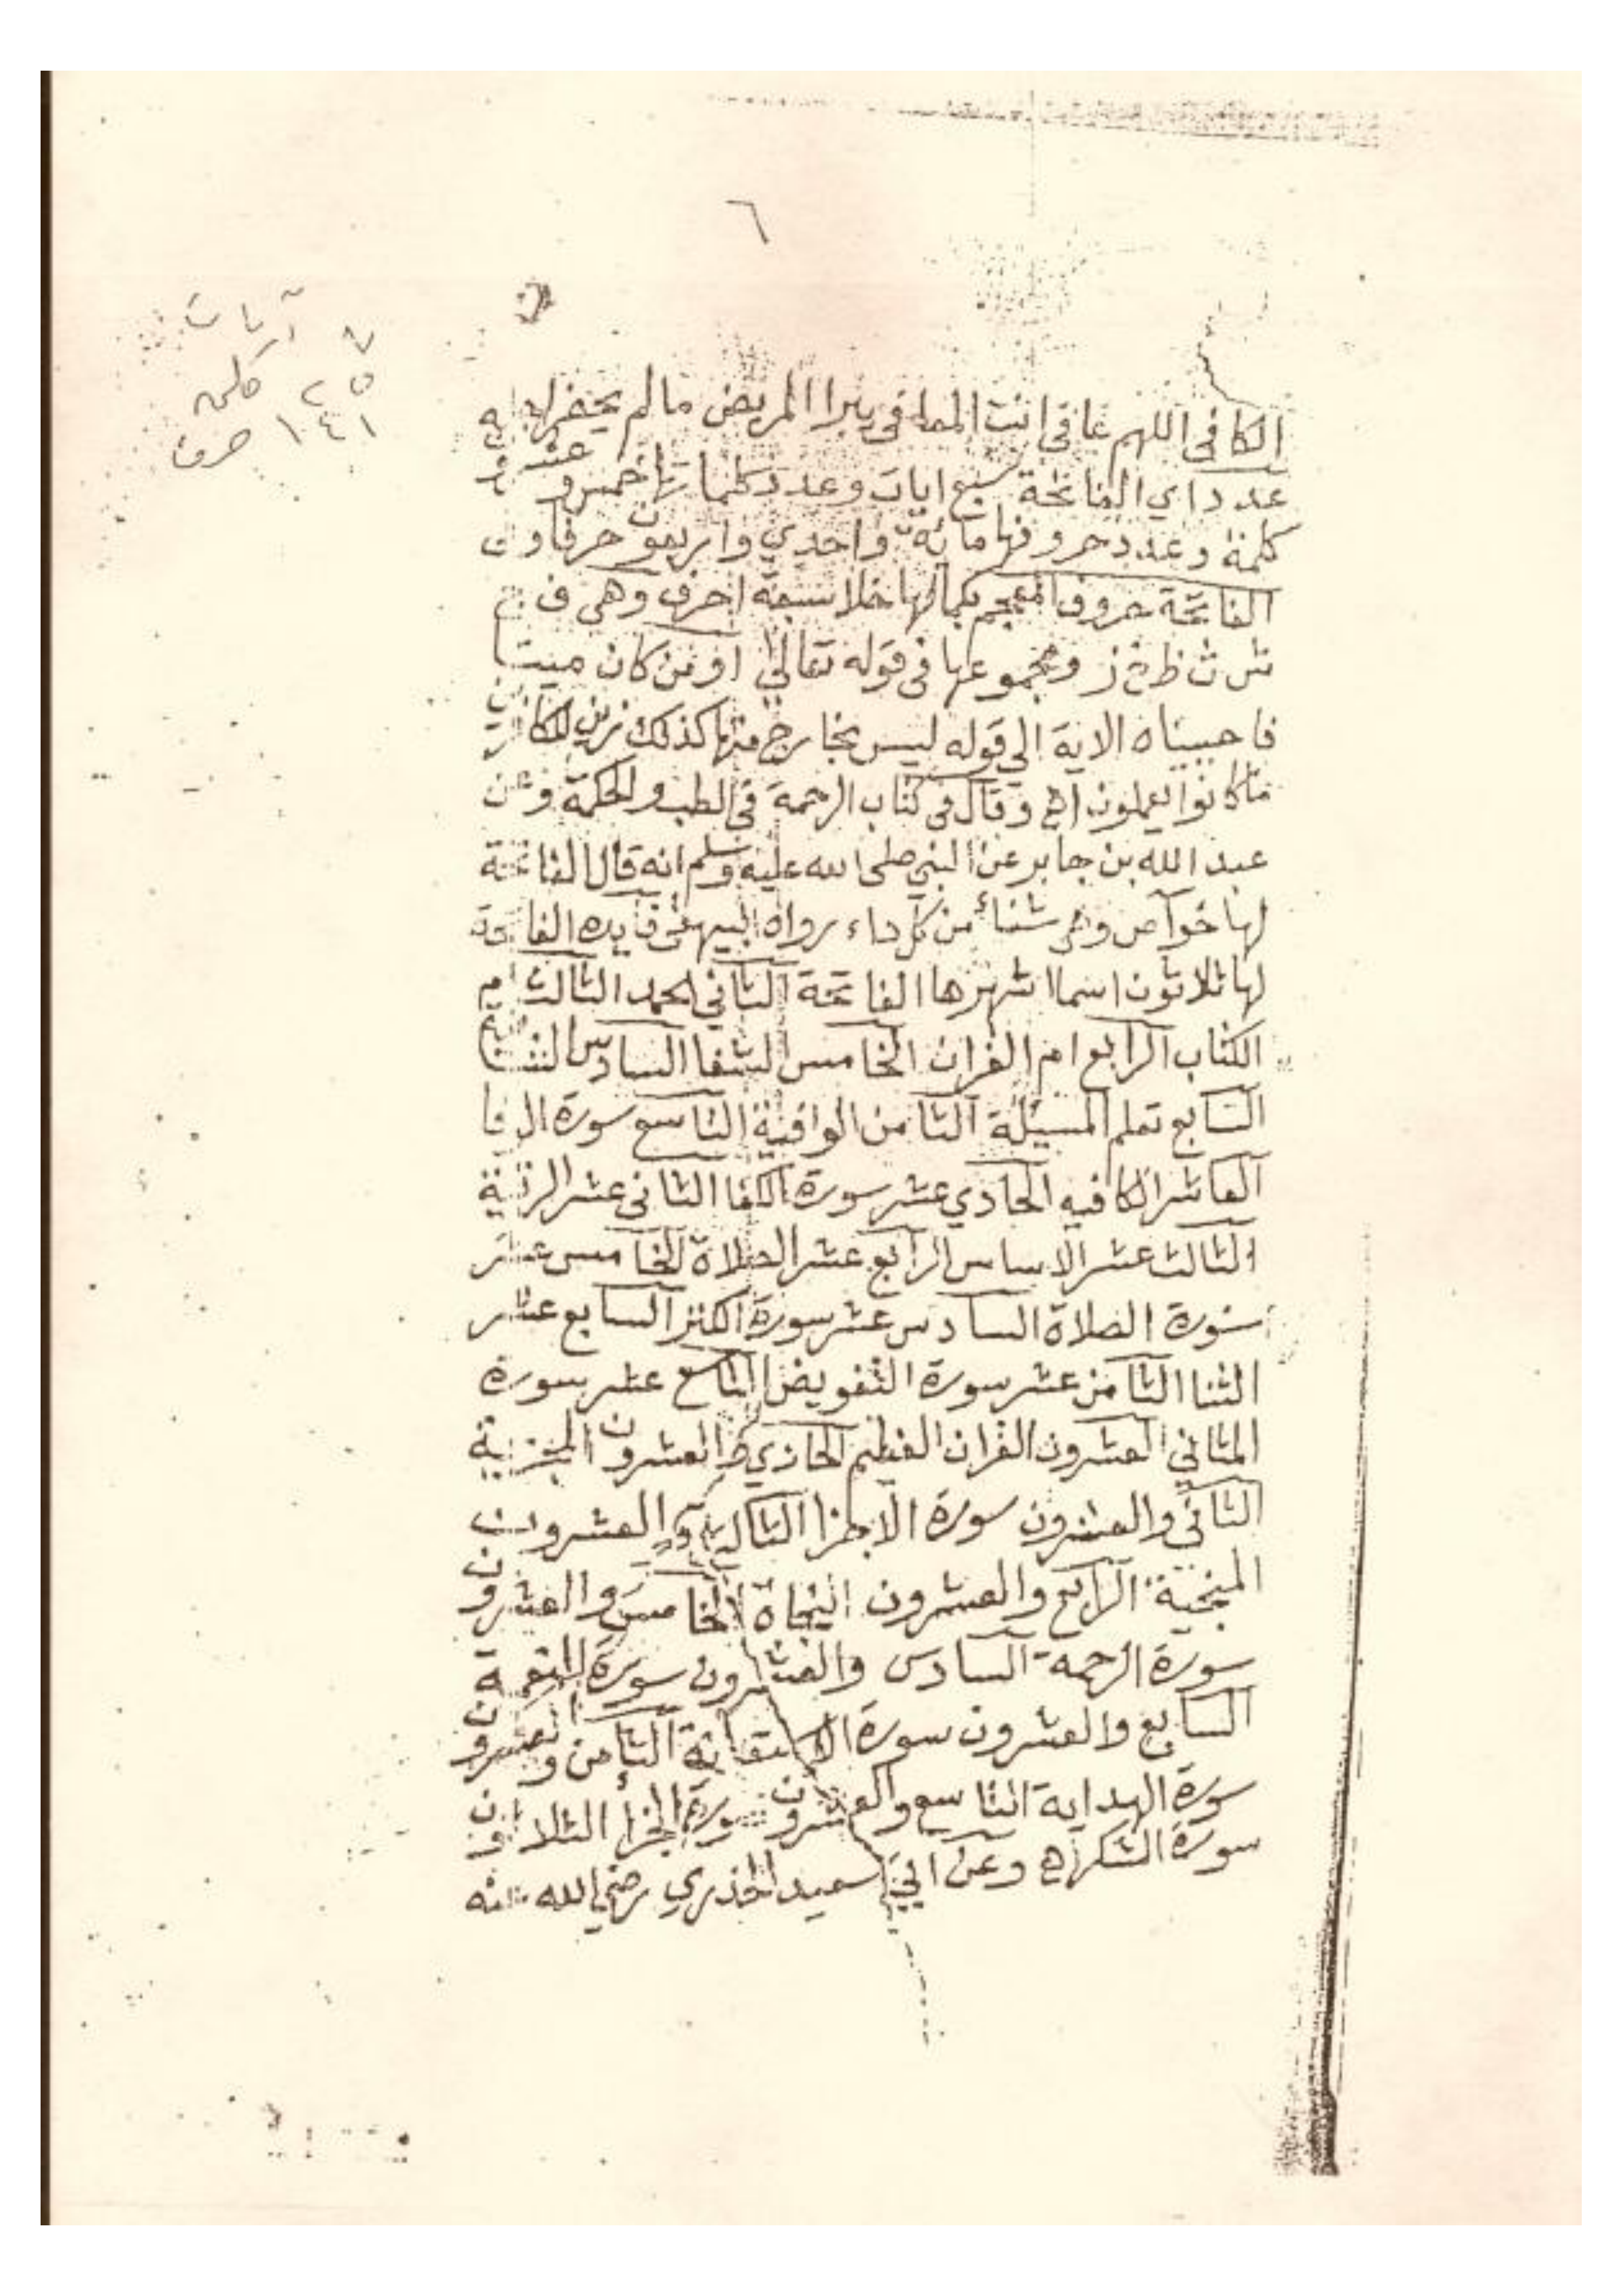 ٦
٧ آيات
٢٥ كلمه
١٤١ حرف
الكافى اللهم عافى انت المعافى يبرا المريض ما لم يحضر
عدد اي الفاتحة سبع ايات وعدد كلماتها خمس وعشرو
كلمة وعدد حروفها مائة واحدي واربعون حرفا و
الفاتحة حروف المعجم بكمالها خلا سبعة احرف وهى ف ج
ش ث ظ خ ز ومجموعها فى قوله تعالى او من كان ميتا
فاحييناه الاية الي قوله ليس بخارج منها كذلك زين للكافرين
ما كانوا يعملون اه وقال فى كتاب الرحمة فى الطب والحكمة وعن
عبد الله بن جابر عن النبي صلى الله عليه وسلم انه قال الفاتحة
لها خواص وهى شفاء من كل داء رواه البيهقى فايده الفاتحة
لها ثلاثون اسما اشهرها الفاتحة الثاني الحمد الثالث ام
الكتاب الرابع ام القران الخامس الشفا السادس
السابع تعلم المسيلة الثامن الوافية التاسع سورة الوفا
العاشر الكافيه الحادي عشر سورة الكفا الثانى عشر الرقية
الثالث عشر الاساس الرابع عشر الصلاة الخامس عشر
سورة الصلاة السادس عشر سورة الكنز السابع عشر
الثنا الثامن عشر سورة التفويض التاسع عشر سورة
المثاني العشرون القران العظيم الحادي والعشرون المجزية
الثاني والعشرون سورة الاجزا الثالث والعشرون
المنجية الرابع والعشرون النجاة الخامس والعشرون
سورة الرحمة السادس والعشرون سورة النعمة
السابع والعشرون سورة الاستقانة الثامن والعشرون
سورة الهداية التاسع والعشرون سورة الجزأ الثلاثون
سورة الشكر اه وعن ابي سعيد الخدري رضي الله عنه